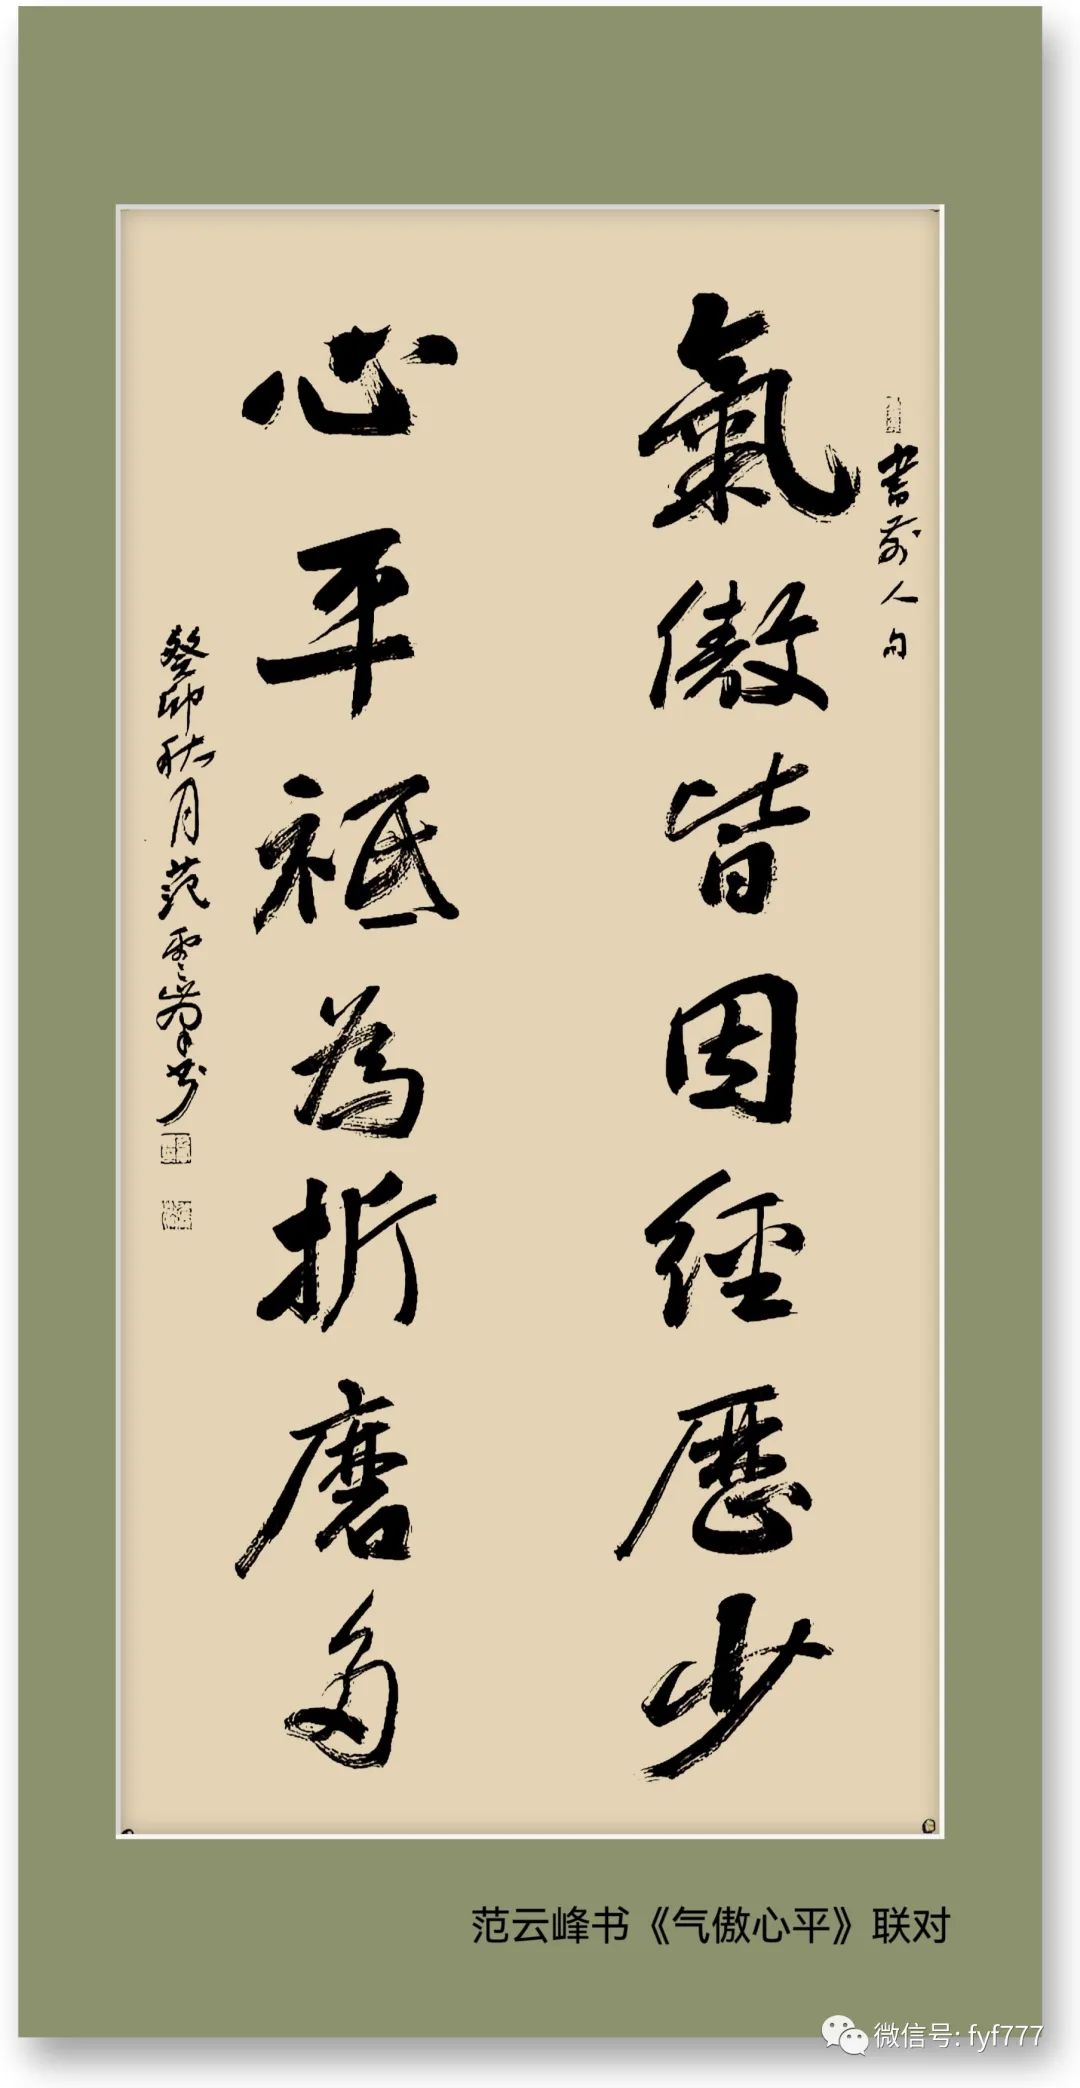 書前人句
氣傲皆因經歷少
心平祗為折磨多
癸卯秋月范雲峯书
范云峰书《气傲心平》联对
微信号: fyf777